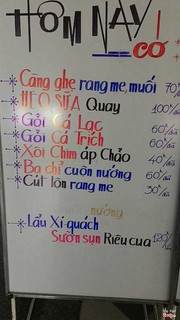 HÔM NAY
CÓ
Càng ghẹ rang me, muối 70%
HEO SỮA Quay 100%/dĩa
Gỏi Cá Lạc 60%/dĩa
Gỏi Cá Trích 60%/dĩa
Xôi Chim áp Chảo 40%/dĩa
Ba chỉ cuộn nướng 60%/dĩa
Cút lộn rang me 30%/dĩa
nướng
Lẩu Xí quách
Sườn sụn Riêu cua 120%